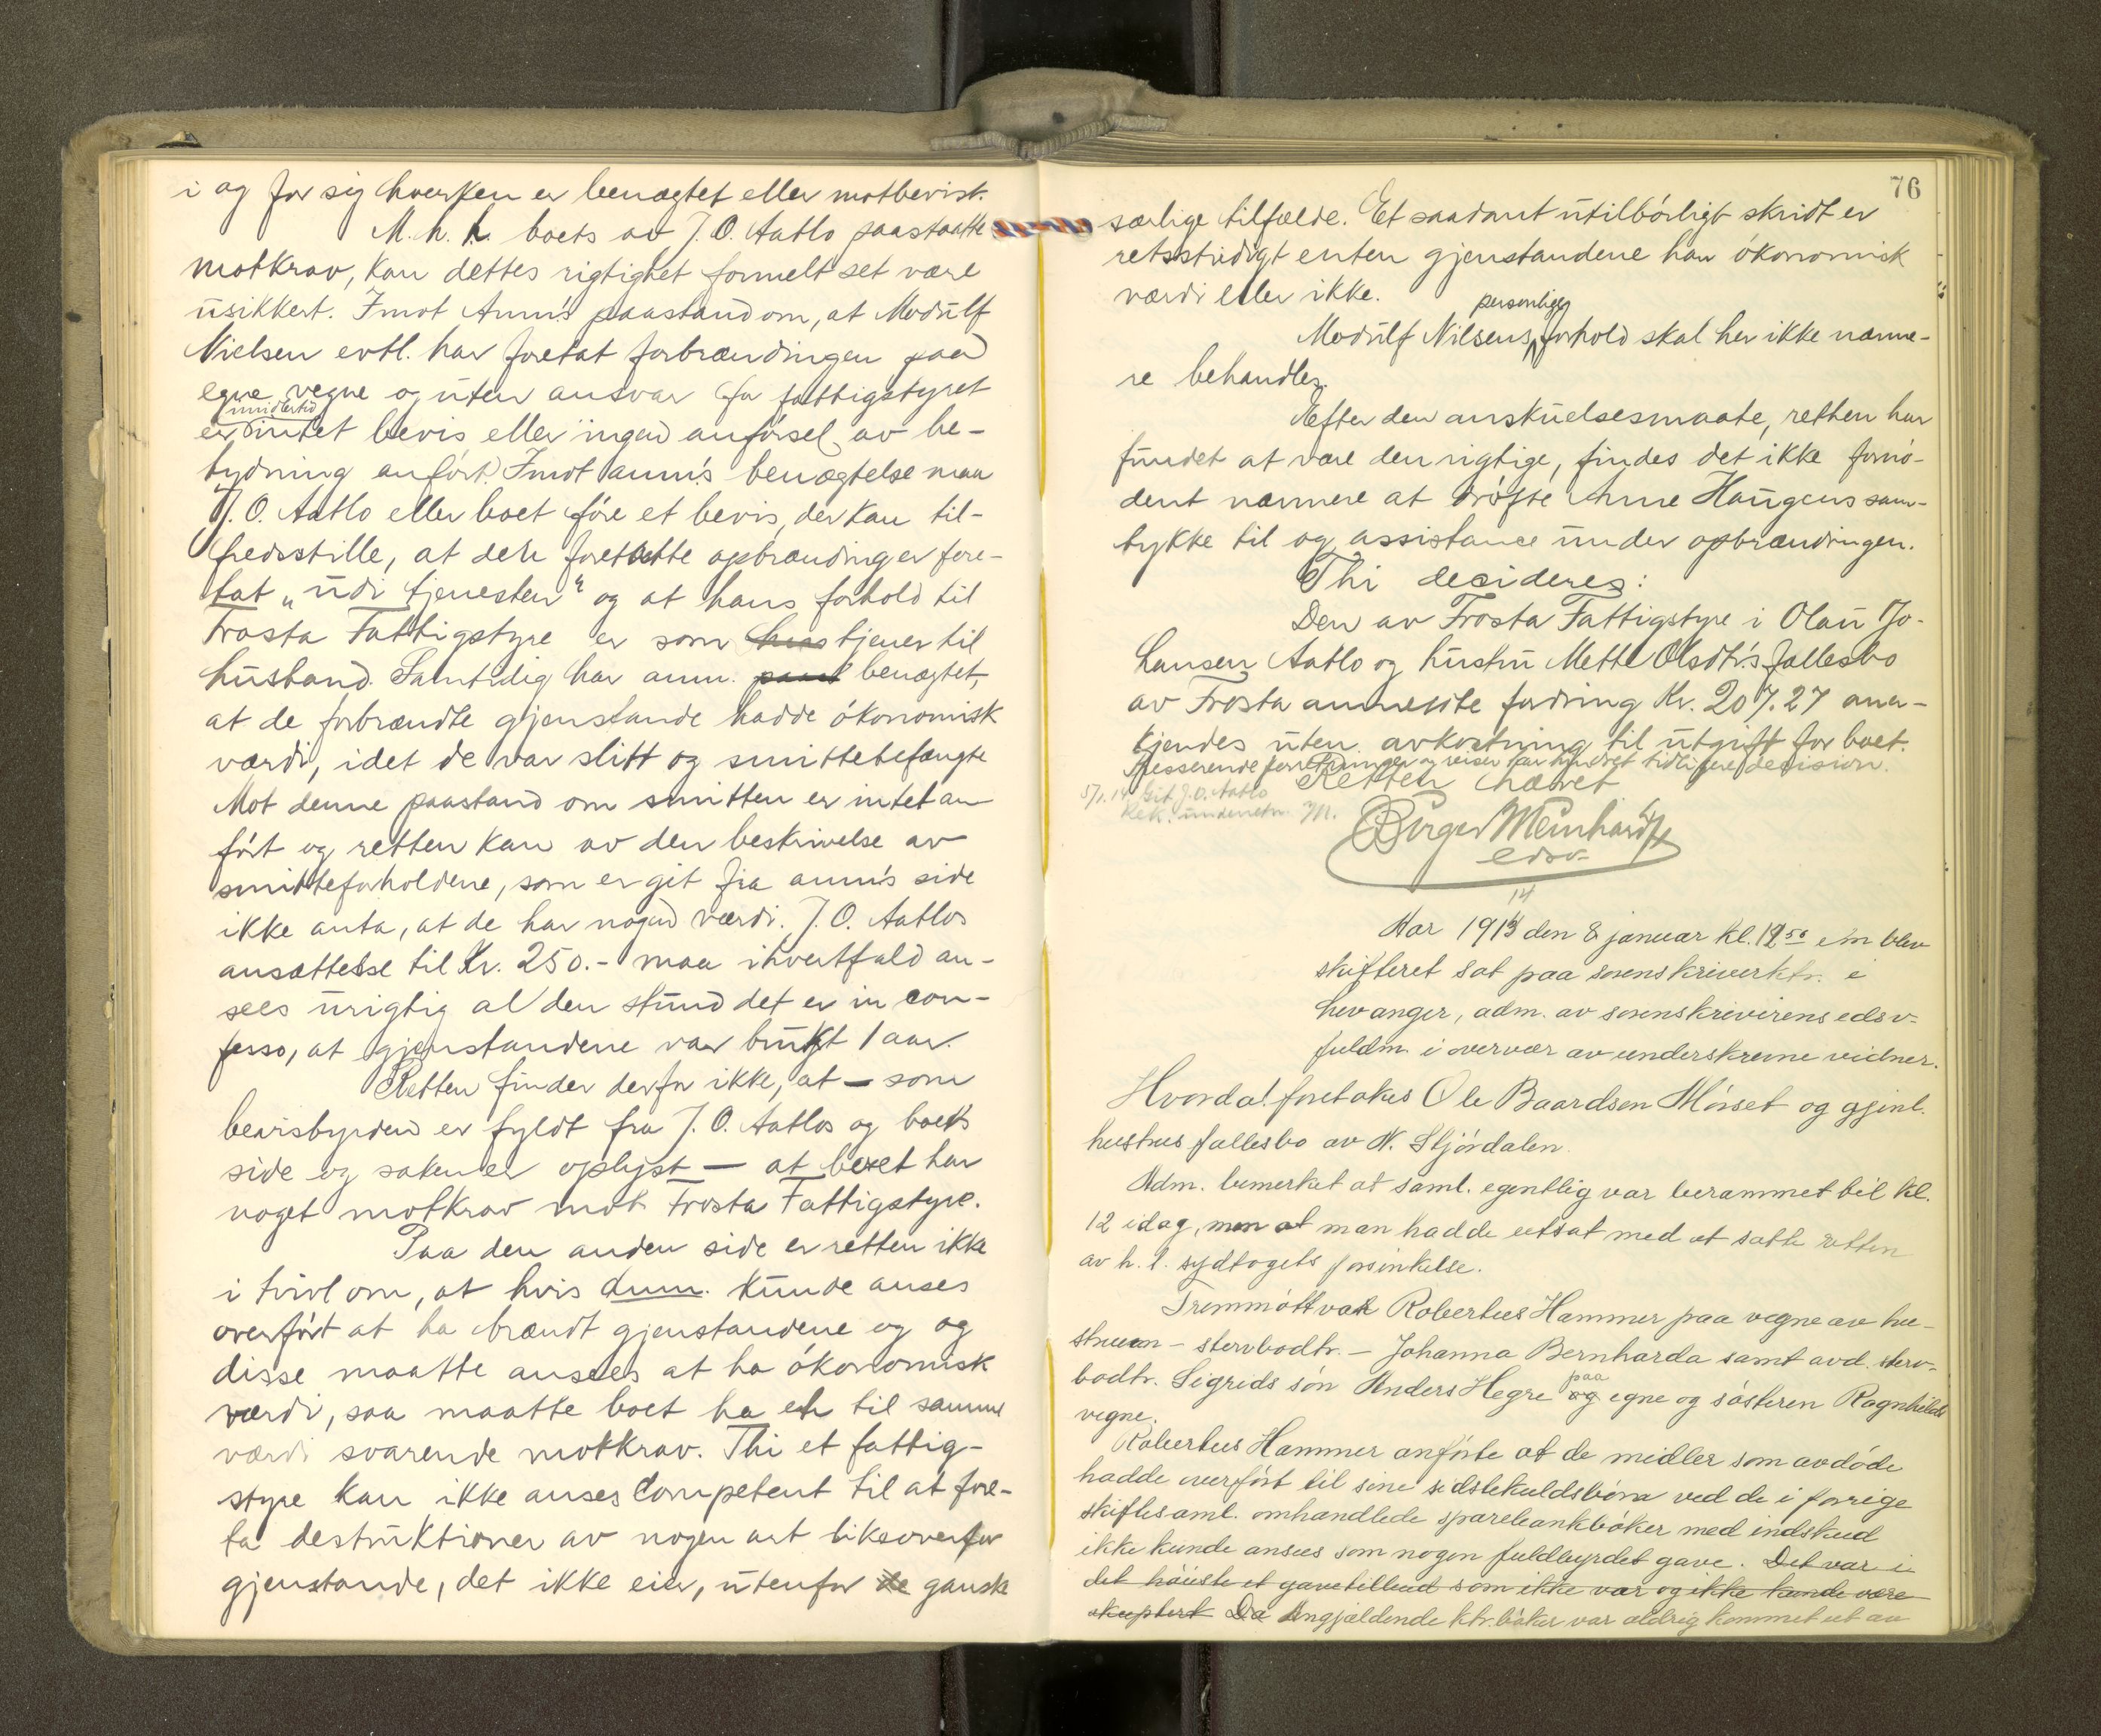 i og for sig hverken er benegtet eller motbevist.
M. h. t. boets av J. O. Aatlo paastaatte
motkrav, kan dettes rigtighet formelt set være
usikkert. Imot Anm's paastand om, at Modulf
Nielsen evtl. har foretat forbrændingen paa
egne vegne og uten ansvar for fattigstyret
er imidlertid intet bevis eller ingen anførsel av be-
tydning anført. Imot anm's benegtelse maa
J. O. Aatlo eller boet føre et bevis, der kan til-
fredsstille, at den foretatte opbrænding er fore-
tat „udi tjenesten" og at hans forhold til
Frosta Fattigstyre er som hans tjener til
husbond. Samtidig har anm. paast benegtet,
at de forbrændte gjenstande hadde økonomisk
værdi, idet de var slitt og smittebefængte
Mot denne paastand om smitten er intet an
ført og retten kan av den beskrivelse av
smitteforholdene, som er git fra anm's side
ikke anta, at de har nogen værdi. J. O. Aatlos
ansættelse til Kr. 250.- maa ihvertfald an-
sees urigtig al den stund det er in con-
fesso, at gjenstandene var brukt 1 aar.
Retten finder derfor ikke, at — som
bevisbyrden er fyldt fra J. O. Aatlos og boets
side og saken er oplyst — at boet har
noget motkrav mot Frosta Fattigstyre.
Paa den anden side er retten ikke
i tvivl om, at hvis dum. kunde anses
overført at ha brændt gjenstandene og og
disse maatte ansees at ha økonomisk
værdi, saa maatte boet ha eh til samme
værdi svarende motkrav. Thi et fattig-
styre kan ikke anses competent til at fore-
ta destruktioner av nogen art likeoverfor
gjenstande, det ikke eier, utenfor de ganske
76
særlige tilfælde. Et saadant utilbørligt skridt er
retsstridigt enten gjenstandene har økonomisk
værdi eller ikke.
Modulf Nilsens personlige forhold skal her ikke nærme-
re behandles.
Efter den anskuelsesmaate, retten har
fundet at være den rigtige, findes det ikke fornø-
dent nærmere at drøfte Anne Haugens sam-
tykke til og assistance under opbrændingen.
Thi decideres:
Den av Frosta Fattigstyre i Olau Jo-
hansen Aatlo og hustru Mette Olsdtr.s fællesbo
av Frosta anmeldte fordring Kr. 207.27 aner-
kjendes uten avkortning til utgift for boet.
Presserende forretninger og reiser har hindret tidligere decision.
Retten hævet
5/1.14 Git J. O. Aatlo
Rek. underretn. M.
Birger Meinhardt
edsv.
14
Aar 1913 den 8 januar kl. 12 50 e/m blev
skifteret sat paa sorenskriverktr. i
Levanger, adm. av sorenskriverens edsv.
fuldm. i overvær av underskrevne vidner.
Hvorda! foretakes Ole Baardsen Mørset og gjenl.
hustrus fællesbo av N. Stjørdalen.
Adm. bemerket at saml. egentlig var berammet til kl.
12 idag, men at man hadde utsat med at sætte retten
av h. t. sydtogets forsinkelse.
Fremmøtt var Robertus Hammer paa vegne av hu-
struen – stervbodtr. – Johanna Bernharda samt avd. sterv-
bodtr. Sigrids søn Anders Hegre og paa egne og søsteren Ragnhilds
vegne.
Robertus Hammer anførte at de midler som avdøde
hadde overført til sine sidstekuldsbørn ved de i forrige
skiftesaml. omhandlede sparebankbøker med indskud
ikke kunde ansees som nogen fuldbyrdet gave. Det var i
det høieste et gavetilbud som ikke var og ikke kunde være
akceptert Da Angjældende ktr.bøker var aldrig kommet ut av